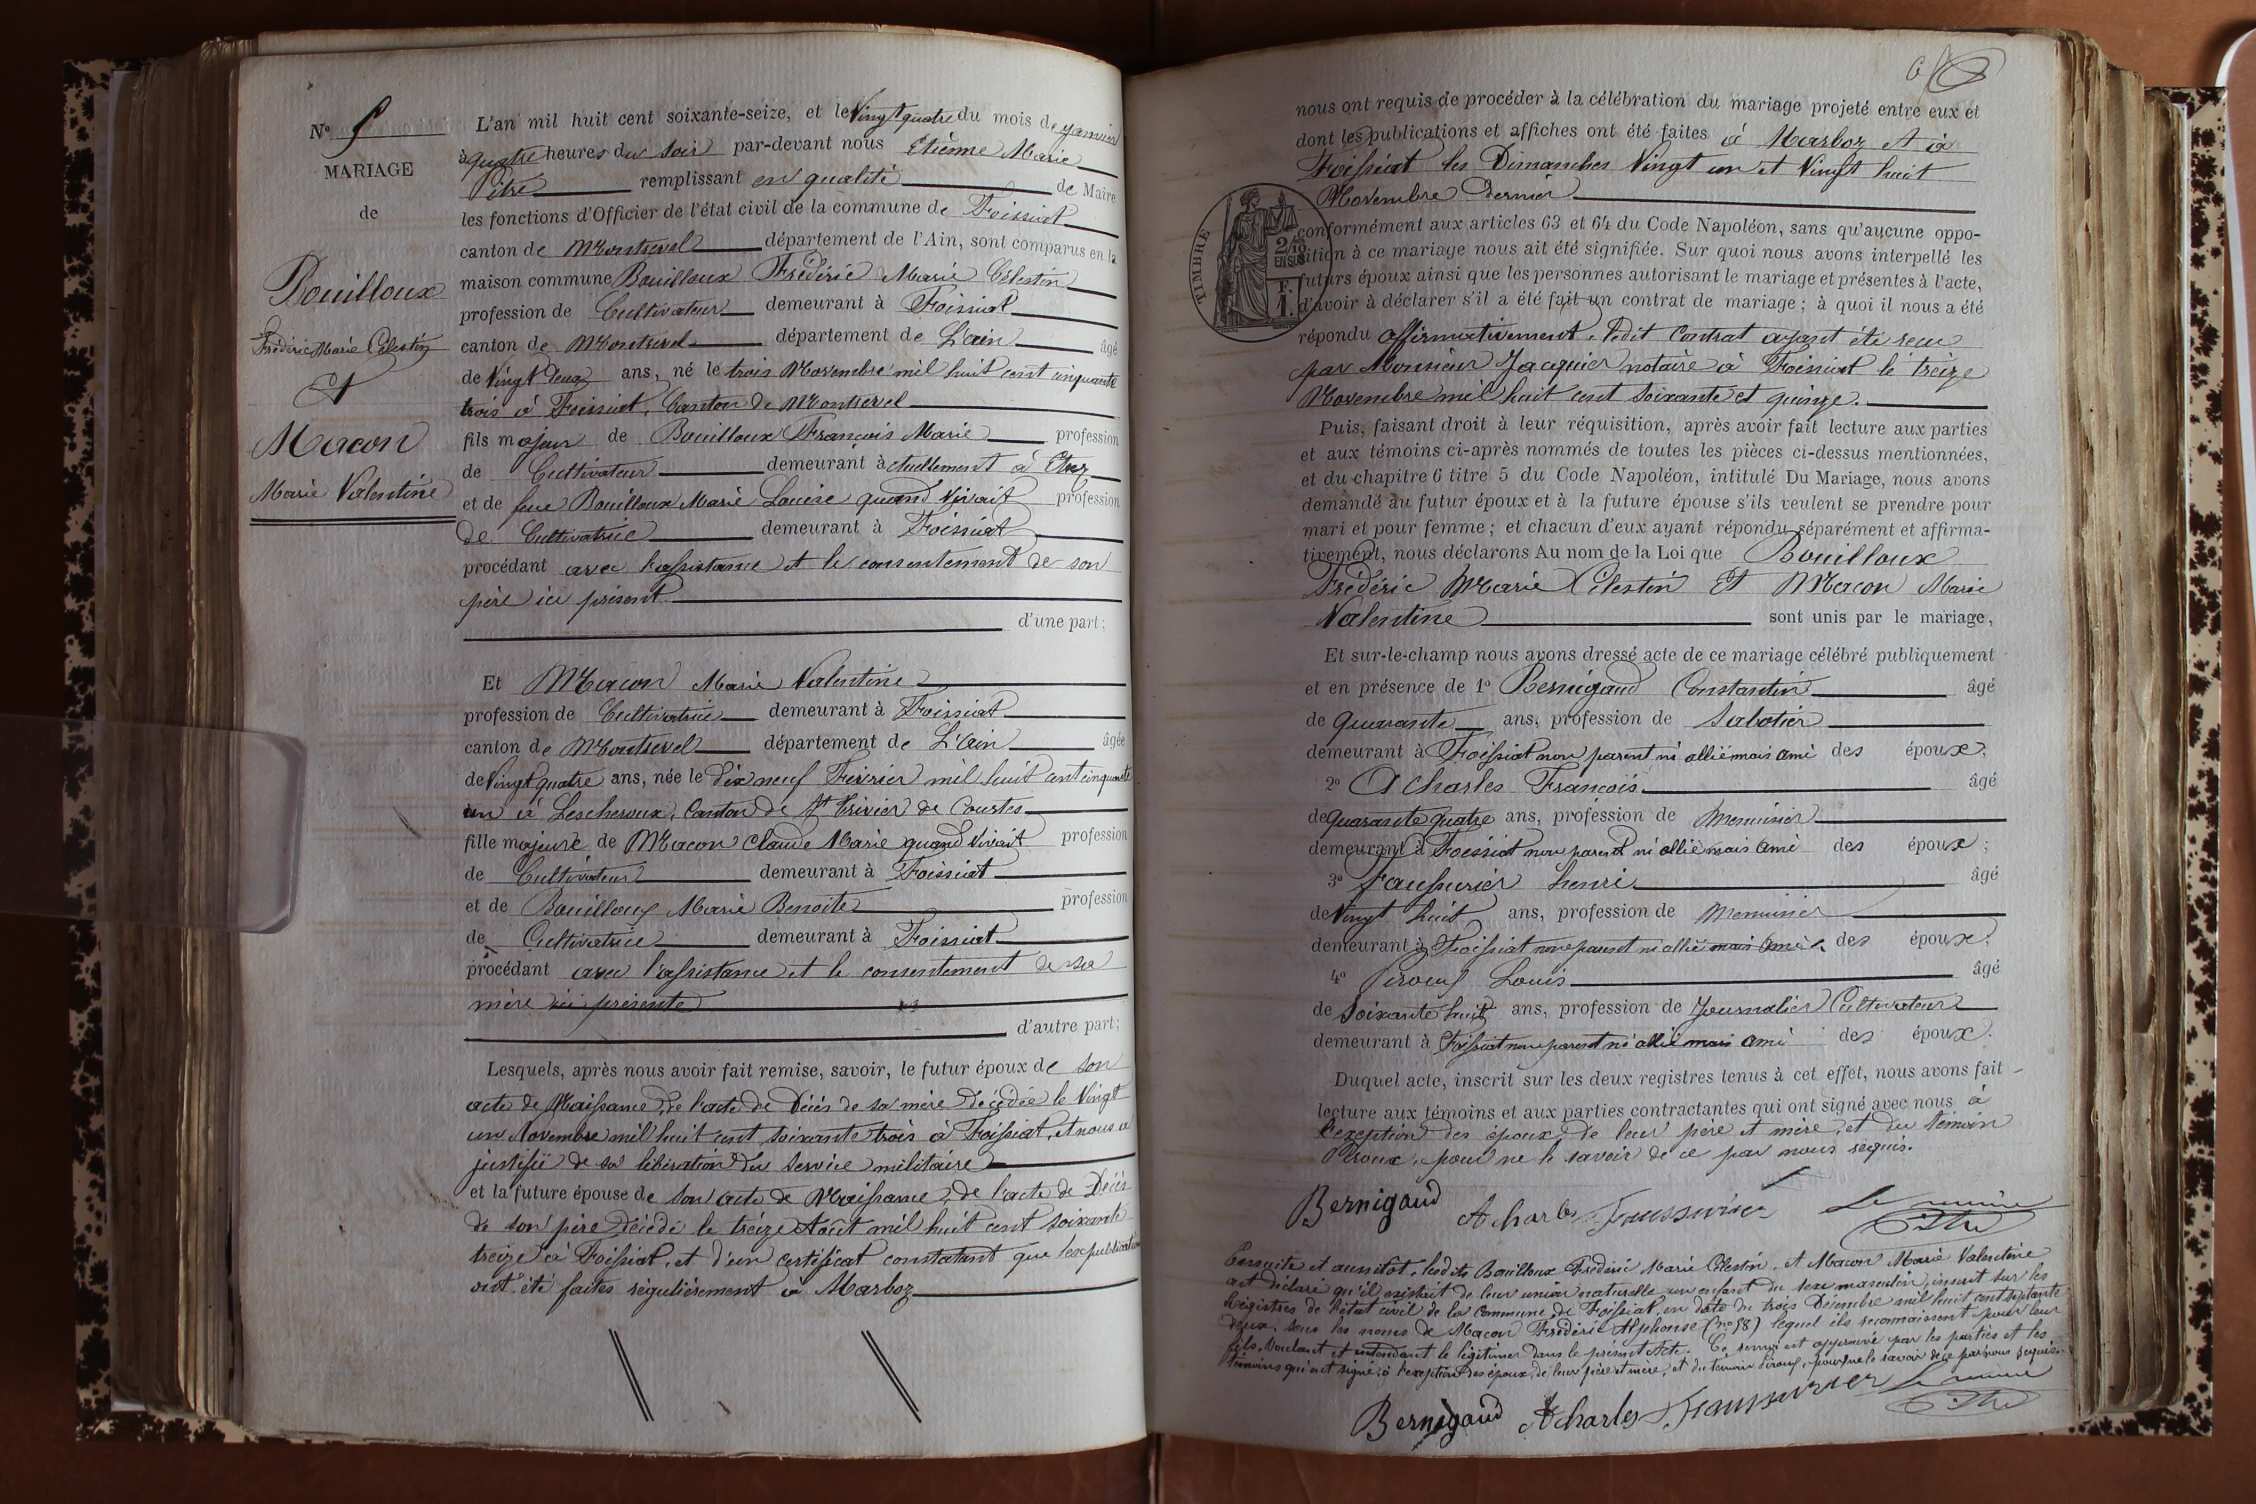 N° 5
MARIAGE
de
Bouilloux
Frédéric Marie Célestin
Et
Macon
Marie Valentine
L'an mil huit cent soixante-seize, et le Vingt quatre du mois de janvier
à quatre heures du soir par-devant nous Etienne Marie
Pitre remplissant en qualité de Maire
les fonctions d'Officier de l'état civil de la commune de Foissiat
canton de Montrevel département de l'Ain, sont comparus en la
maison commune Bouilloux Frédéric Marie Célestin
profession de Cultivateur demeurant à Foissiat
canton de Montrevel département de L'ain âgé
de Vingt deux ans, né le trois Novembre mil huit cent cinquante
trois à Foissiat, Canton de Montrevel
fils majeur de Bouilloux François Marie profession
de Cultivateur demeurant actuellement à Etrez
et de feue Bouilloux Marie Louise quand vivait profession
de Cultivatrice demeurant à Foissiat
procédant avec l'assistance et le consentement de son
père ici présent
d'une part;
Et Macon Marie Valentine
profession de Cultivatrice demeurant à Foissiat
canton de Montrevel département de L'ain âgée
de Vingt quatre ans, née le Dix neuf Février mil huit cent cinquante
un à Lescheroux, Canton de St Trivier de Courtes
fille majeure de Macon Claude Marie quand vivait profession
de Cultivateur demeurant à Foissiat
et de Bouilloux Marie Benoite profession
de Cultivatrice demeurant à Foissiat
procédant avec l'assistance et le consentement de sa
mère ici présente
d'autre part;
Lesquels, après nous avoir fait remise, savoir, le futur époux de son
acte de Naissance, de l'acte de Décès de sa mère Décédée le Vingt
un Novembre mil huit cent soixante trois à Foissiat, et nous a
justifié de sa libération du service militaire
et la future épouse de son acte de Naissance, de l'acte de Décès
de son père Décédé le treize Août mil huit cent soixante
treize à Foissiat, et d'un certificat constatant que les publications
ont été faites régulièrement à Marboz
6
nous ont requis de procéder à la célébration du mariage projeté entre eux et
dont les publications et affiches ont été faites à Marboz et à
Foissiat les Dimanches Vingt un et Vingt huit
Novembre Dernier
TIMBRE
2/10
EN SUS
F.
1.
conformément aux articles 63 et 64 du Code Napoléon, sans qu'aucune oppo-
sition à ce mariage nous ait été signifiée. Sur quoi nous avons interpellé les
futurs époux ainsi que les personnes autorisant le mariage et présentes à l'acte,
d'avoir à déclarer s'il a été fait un contrat de mariage; à quoi il nous a été
répondu affirmativement, ledit Contrat ayant été reçu
par Monsieur Jacquier notaire à Foissiat le treize
Novembre mil huit cent soixante et quinze.
Puis, faisant droit à leur réquisition, après avoir fait lecture aux parties
et aux témoins ci-après nommés de toutes les pièces ci-dessus mentionnées,
et du chapitre 6 titre 5 du Code Napoléon, intitulé Du Mariage, nous avons
demandé au futur époux et à la future épouse s'ils veulent se prendre pour
mari et pour femme; et chacun d'eux ayant répondu séparément et affirma-
tivement, nous déclarons Au nom de la Loi que Bouilloux
Frédéric Marie Célestin Et Macon Marie
Valentine sont unis par le mariage,
Et sur-le-champ nous avons dressé acte de ce mariage célébré publiquement
et en présence de 1° Bernigaud Constantin âgé
de quarante ans, profession de Sabotier
demeurant à Foissiat non parent ni allié mais ami des époux;
2° Acharles François âgé
de quarante quatre ans, profession de Menuisier
demeurant à Foissiat non parent ni allié mais ami des époux;
3° Faussurier henri âgé
de Vingt huit ans, profession de Menuisier
demeurant à Foissiat non parent ni allié mais ami des époux;
4° Piroux Louis âgé
de soixante huit ans, profession de Journalier Cultivateur
demeurant à Foissiat non parent ni allié mais ami des époux.
Duquel acte, inscrit sur les deux registres tenus à cet effet, nous avons fait
lecture aux témoins et aux parties contractantes qui ont signé avec nous à
l'exception des époux, de leur père et mère, et du témoin
Piroux, pour ne le savoir de ce par nous requis.
Bernigaud Acharles Faussurier Le maire
Pitre
Ensuite et aussitot, lesdits Bouilloux Frédéric Marie Célestin, et Macon Marie Valentine
ont déclaré qu'il existait de leur union naturelle un enfant du sexe masculin, inscrit sur les
Régistres de l'état civil de la Commune de Foissiat, en date du trois Décembre mil huit cent septante
deux, sous les noms de Macon Frédéric Alphonse (no 58) lequel ils reconnaissent pour leur
fils, Voulant et entendant le légitimer dans le présent Acte. Ce renvoi est approuvé par les parties et les
témoins qui ont signé, à l'exception des époux, de leur père et mère, et du témoin Piroux, pour ne le savoir de ce par nous requis.
Bernigaud Acharles Faussurier Le maire
Pitre